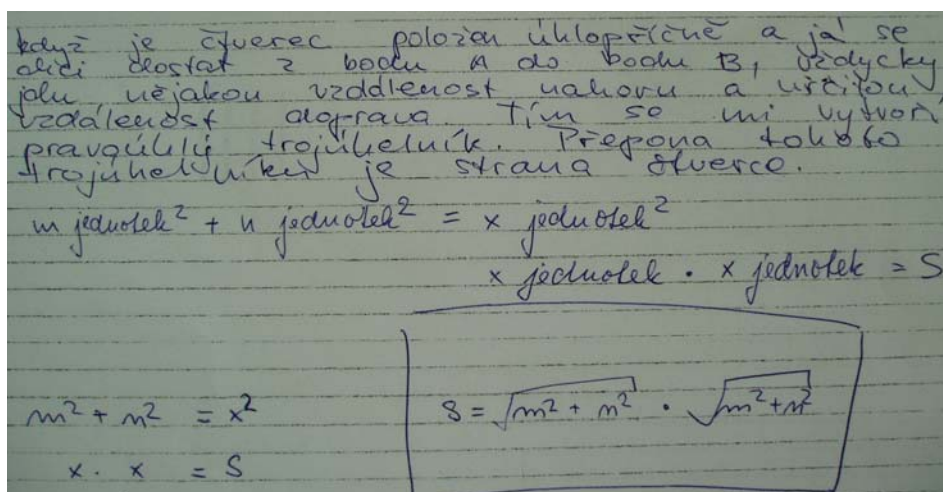 když je čtverec položen úhlopříčně a já se
chci dostat z bodu A do bodu B, vždycky
jdu nějakou vzdálenost nahoru a určitou
vzdálenost doprava. Tím se mi vytvoří
pravoúhlý trojúhelník. Přepona tohoto
trojúhelníku je strana čtverce.
m jednotek² + n jednotek² = x jednotek²
x jednotek · x jednotek = S
m² + n² = x²
x · x = S
S = √m² + n² · √m² + n²